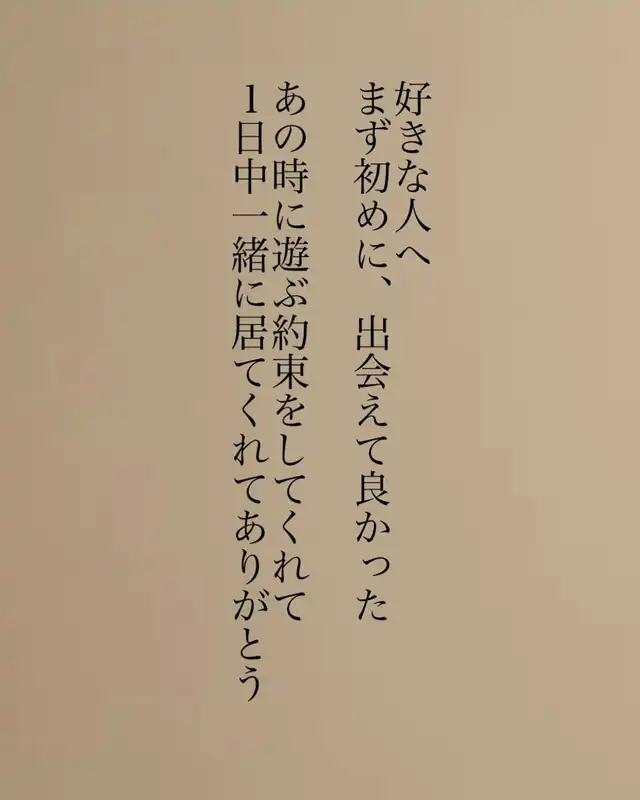 好きな人へ
まず初めに、出会えて良かった
あの時に遊ぶ約束をしてくれて
１日中一緒に居てくれてありがとう